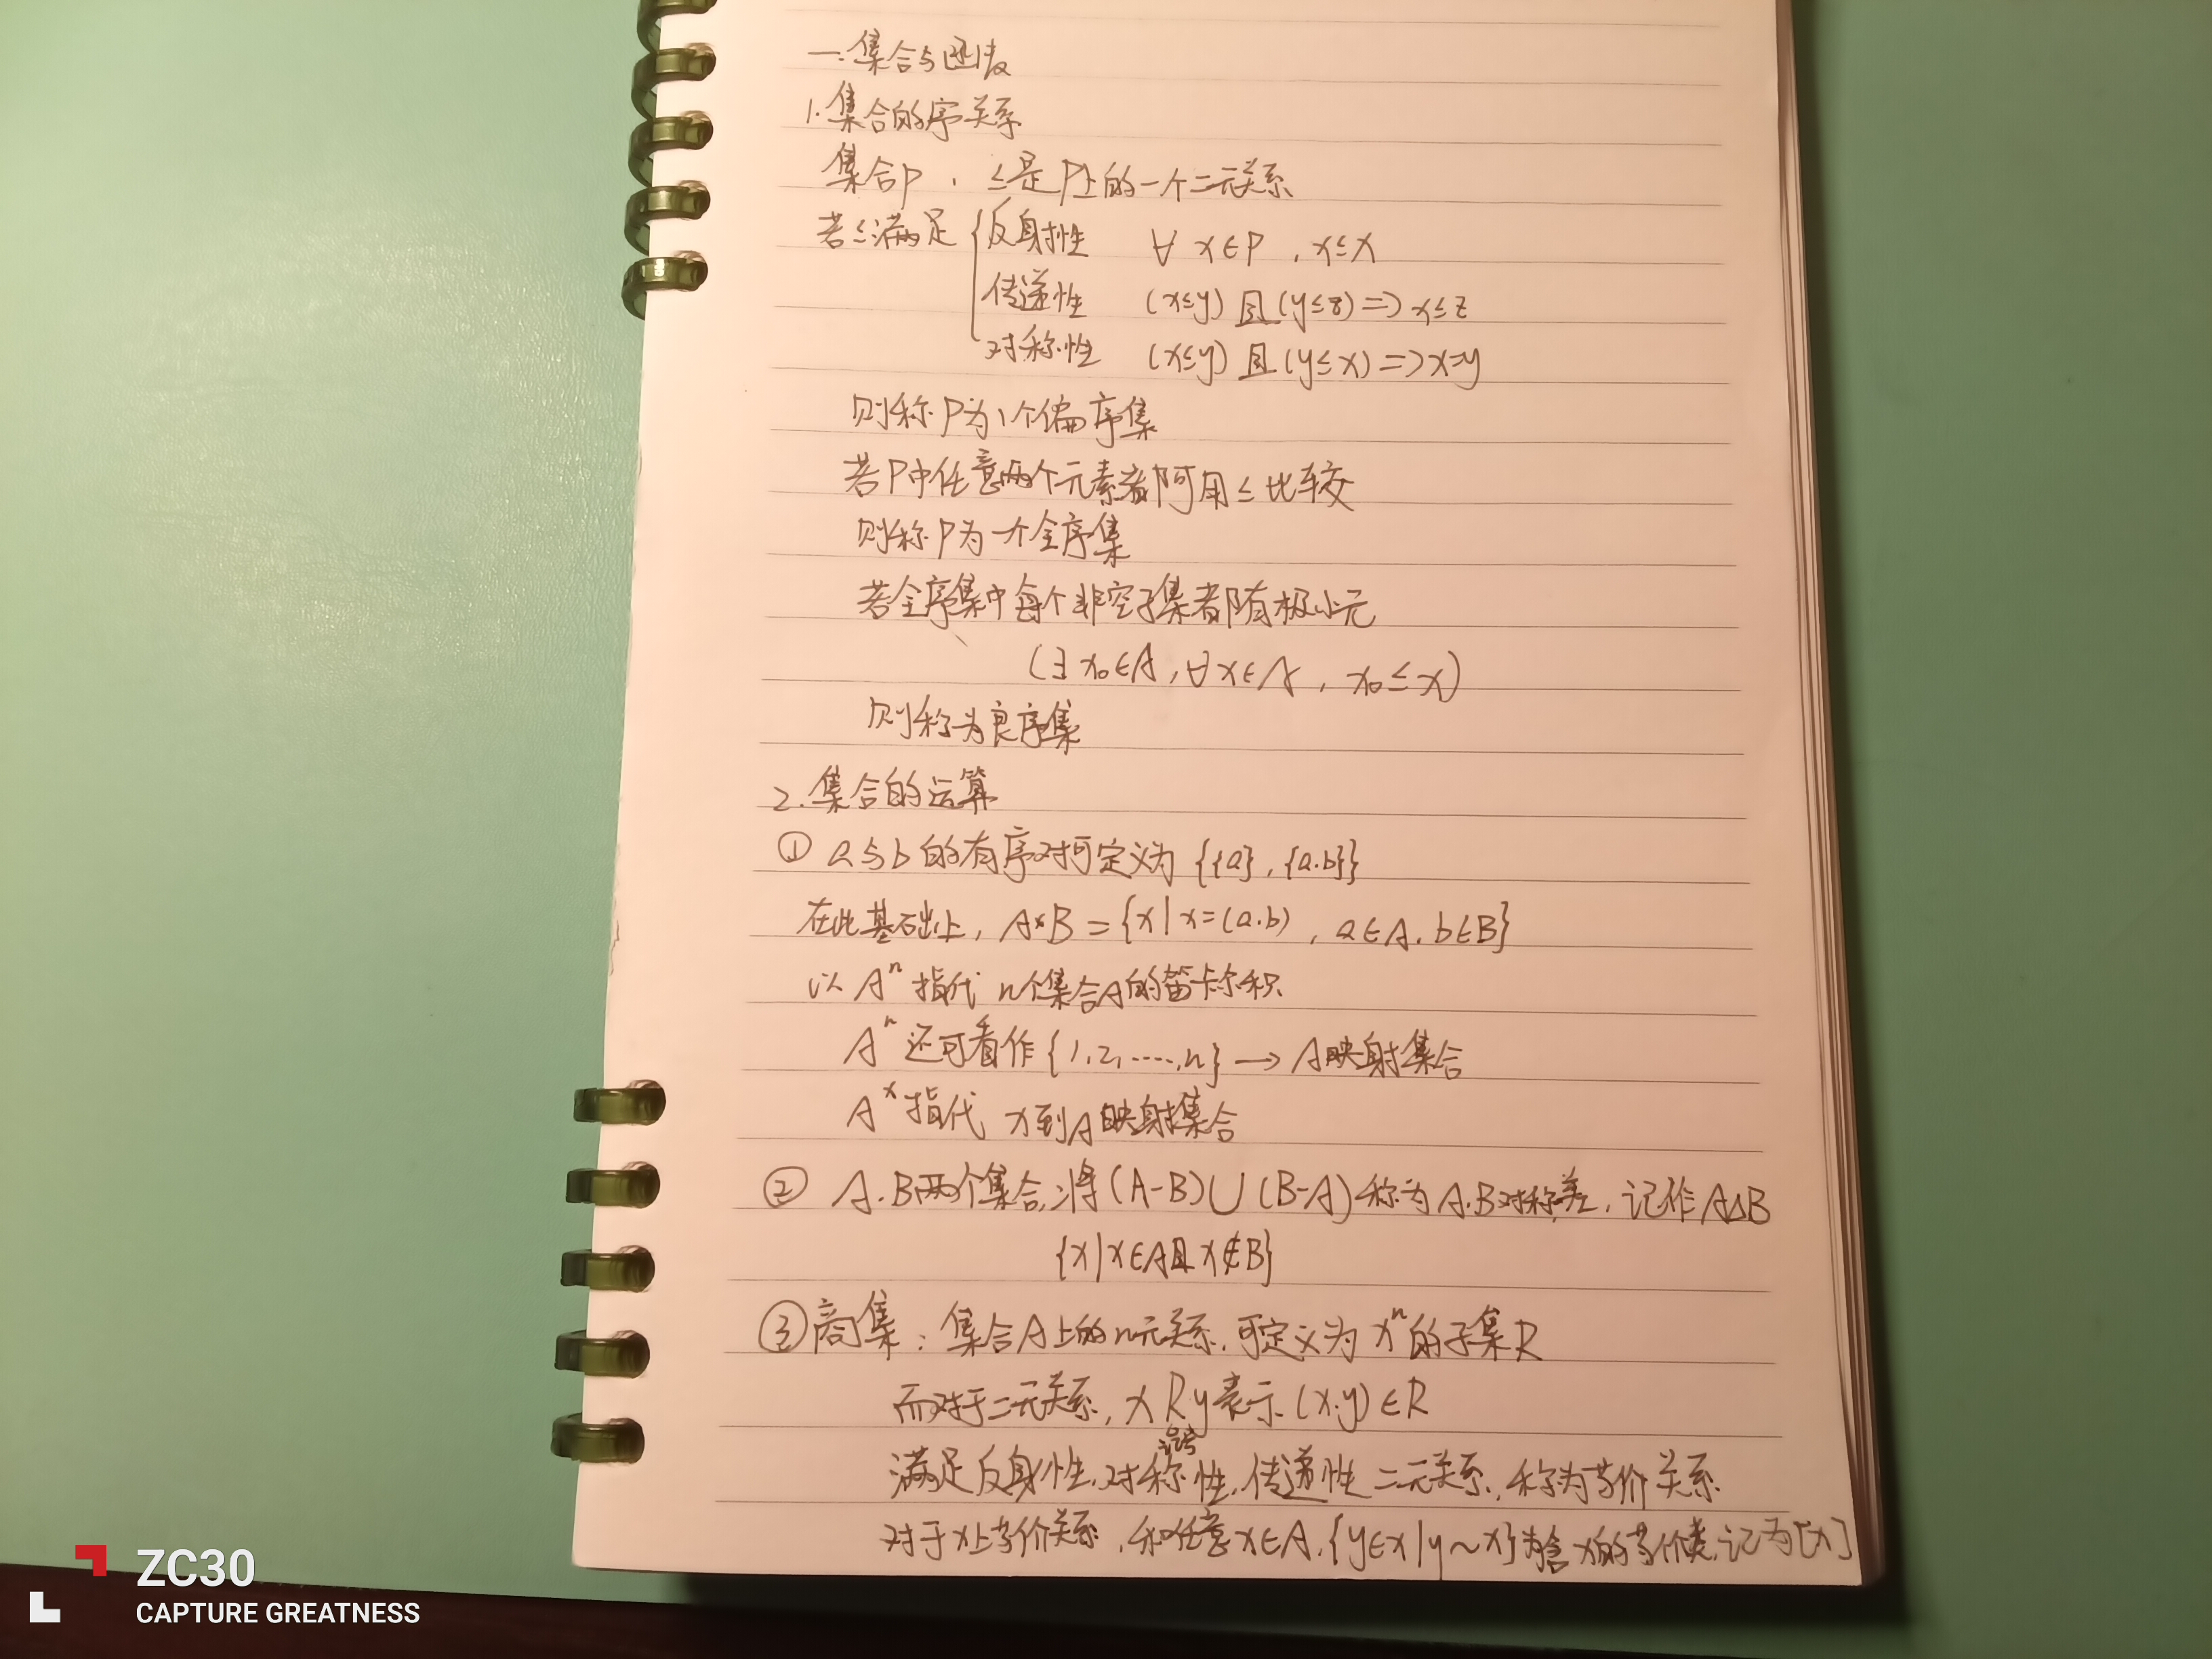 一.集合与函数
1.集合的序关系
集合P，≤是P上的一个二元关系
若≤满足{反身性 ∀ x∈P，x≤x
传递性 (x≤y)且(y≤z)=>x≤z
对称性 (x≤y)且(y≤x)=>x=y
则称P为1个偏序集
若P中任意两个元素都可用≤比较
则称P为一个全序集
若全序集中每个非空子集都有极小元
(∃x₀∈A,∀x∈A，x₀≤x)
则称为良序集
2.集合的运算
① a与b的有序对可定义为{{a},{a.b}}
在此基础上，A×B={x|x=(a.b)，a∈A.b∈B}
以Aⁿ指代n个集合A的笛卡尔积
Aⁿ还可看作{1,2,……,n}→A映射集合
Aˣ指代x到A映射集合
② A.B两个集合,将(A-B)∪(B-A)称为A.B对称差，记作A△B
{x|x∈A且x∉B}
③商集：集合A上的n元关系,可定义为xⁿ的子集R
而对于二元关系，xRy表示(x.y)∈R
满足反身性.对称性.传递性二元关系，称为等价关系
对于x上等价关系，和任意x∈A,{y∈x|y~x}为含x的等价类,记为[x]
ZC30
CAPTURE GREATNESS